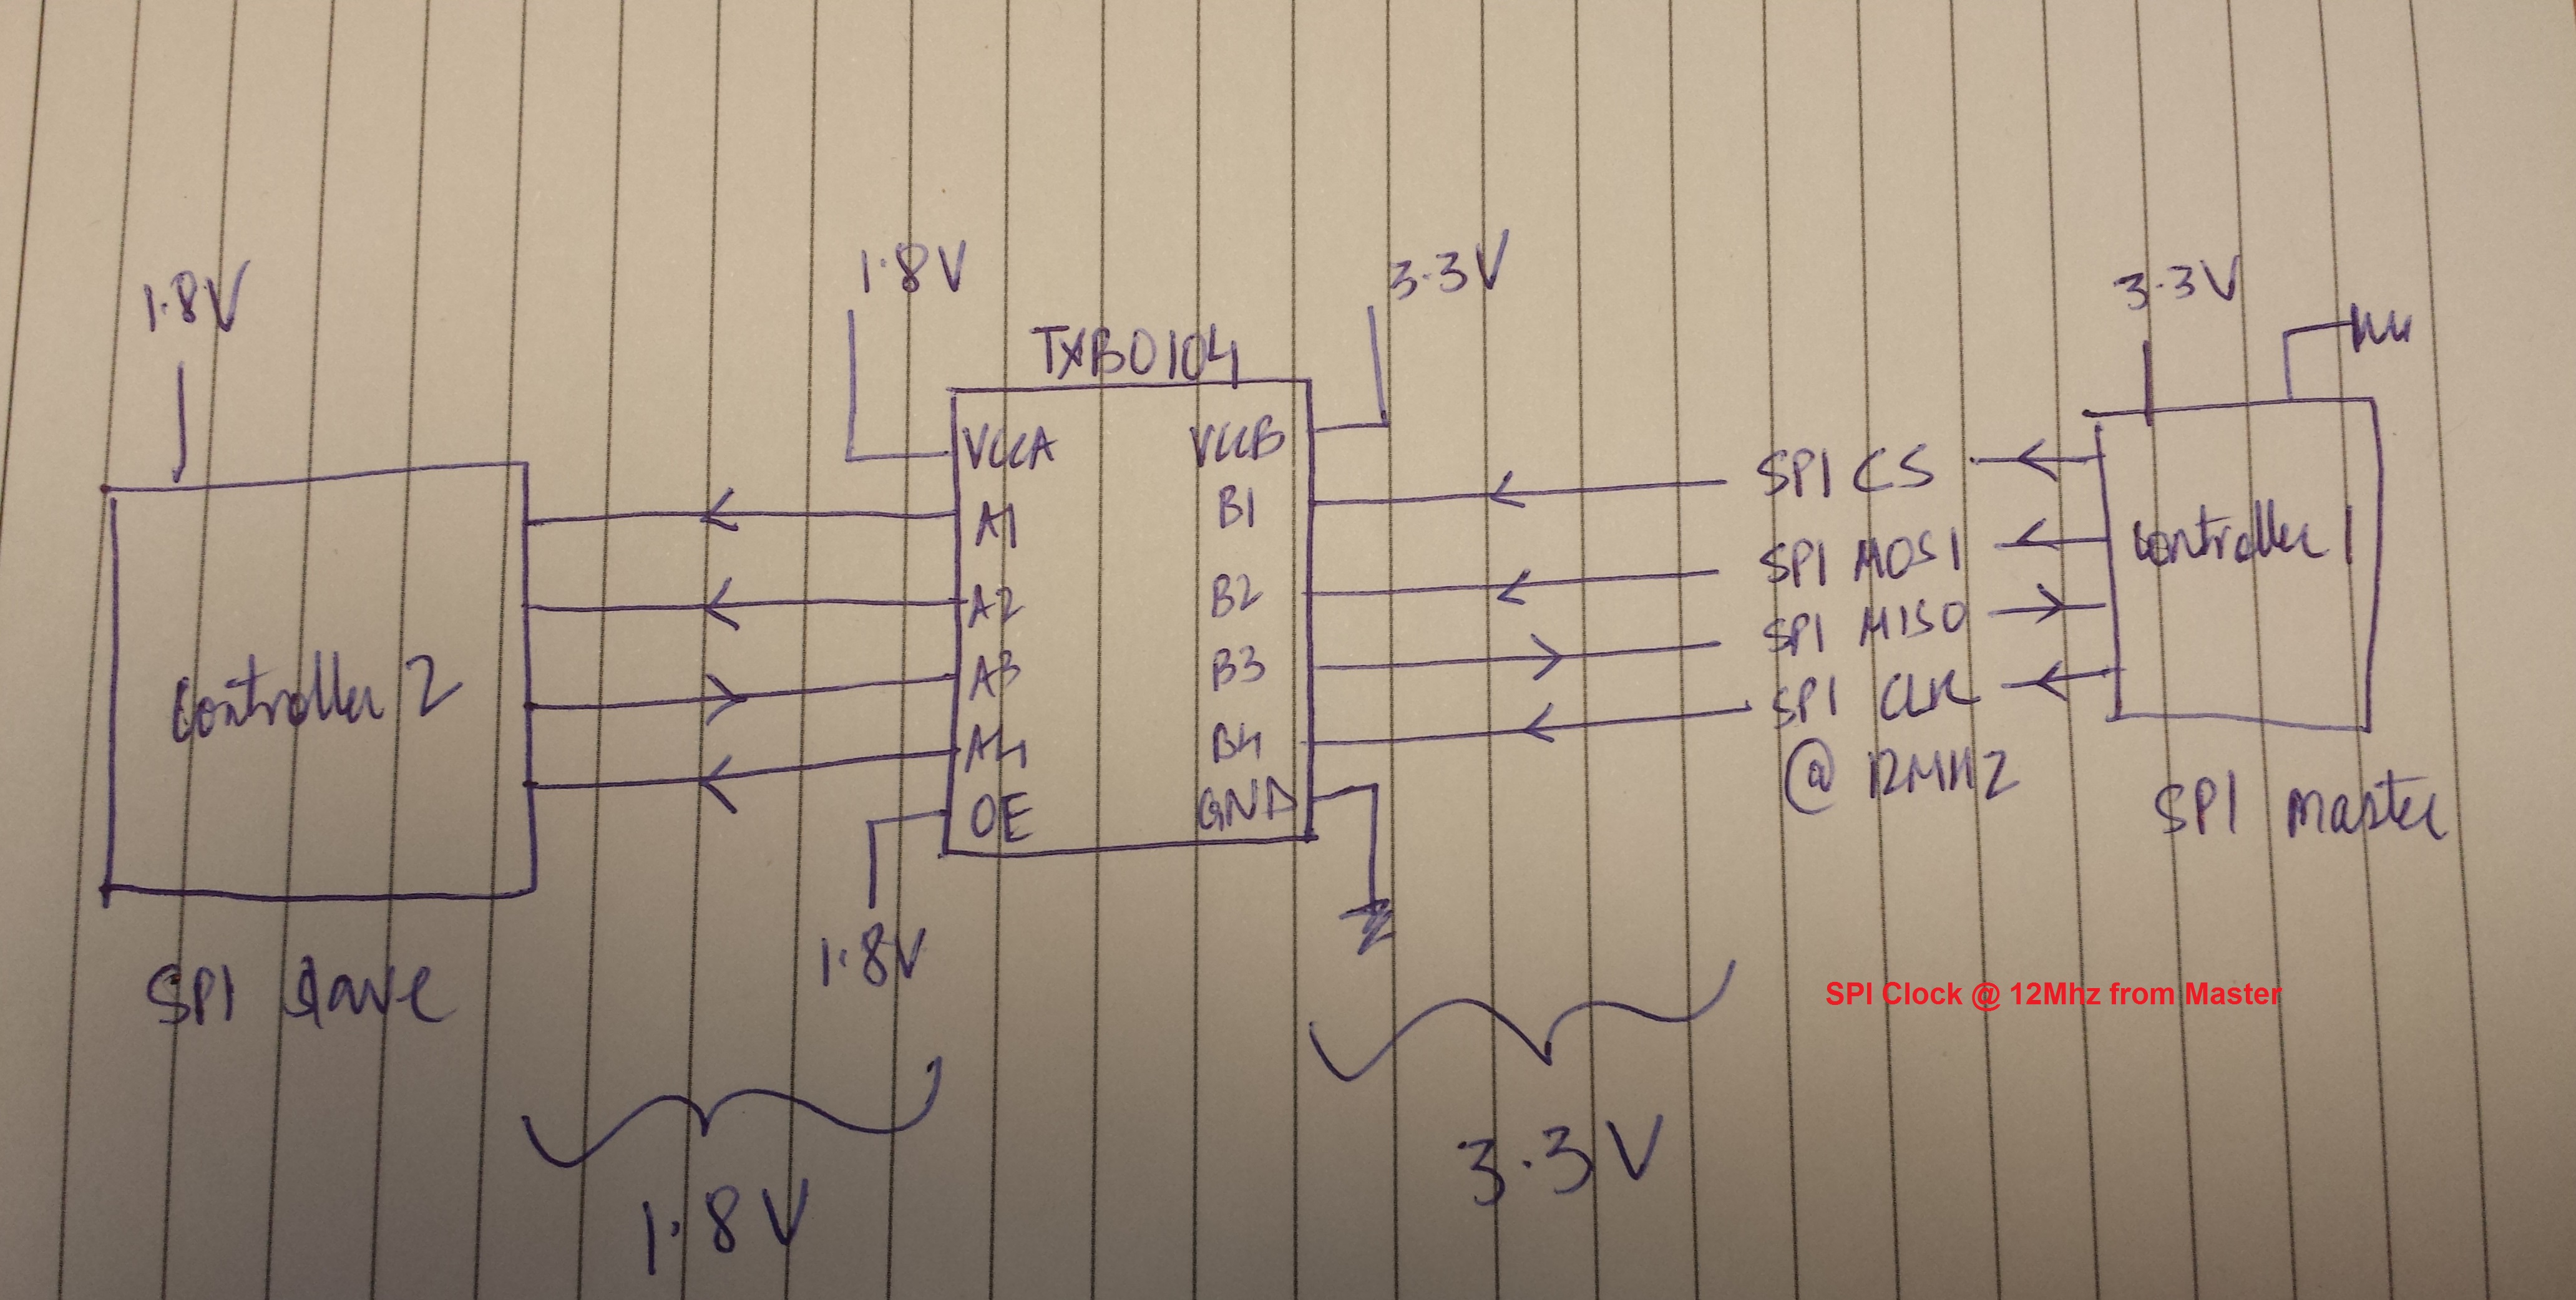 1.8V
1.8V
3.3V
3.3V
TXB0104
VCCA VCCB
A1 B1
A2 B2
A3 B3
A4 B4
OE GND
SPI CS
SPI MOSI
SPI MISO
SPI CLK
@ 12MHZ
Controller 1
SPI Master
Controller 2
SPI slave
1.8V
SPI Clock @ 12Mhz from Master
1.8V
3.3V